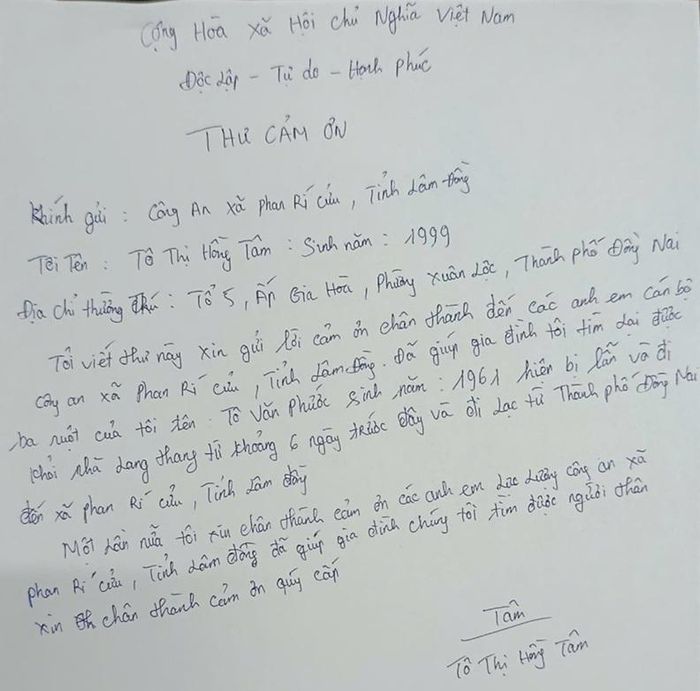 Cộng Hòa Xã Hội Chủ Nghĩa Việt Nam
Độc Lập - Tự do - Hạnh phúc
THƯ CẢM ƠN
Khính gửi : Công An xã phan Rí cửu, Tỉnh Lâm Đồng
Tôi Tên : Tô Thị Hồng Tâm : Sinh năm : 1999
Địa chỉ thường trú : Tổ 5, Ấp Gia Hoà, Phường Xuân Lộc, Thành phố Đồng Nai
Tôi viết thư này xin gửi lời cảm ơn chân thành đến các anh em cán bộ
công an xã Phan Rí cửu, Tỉnh Lâm Đồng. Đã giúp gia đình tôi tìm lại được
ba ruột của tôi tên : Tô Văn Phước sinh năm : 1961 hiện bị lẫn và đi
khỏi nhà lang thang từ khoảng 6 ngày trước đây và đi lạc từ Thành phố Đồng Nai
đến xã phan Rí cửu, Tỉnh Lâm đồng
Một lần nữa tôi xin chân thành cảm ơn các anh em lực lượng công an xã
phan Rí cửu, Tỉnh Lâm đồng đã giúp gia đình chúng tôi tìm được người thân
xin chân thành cảm ơn quý cấp
Tâm
Tô Thị Hồng Tâm